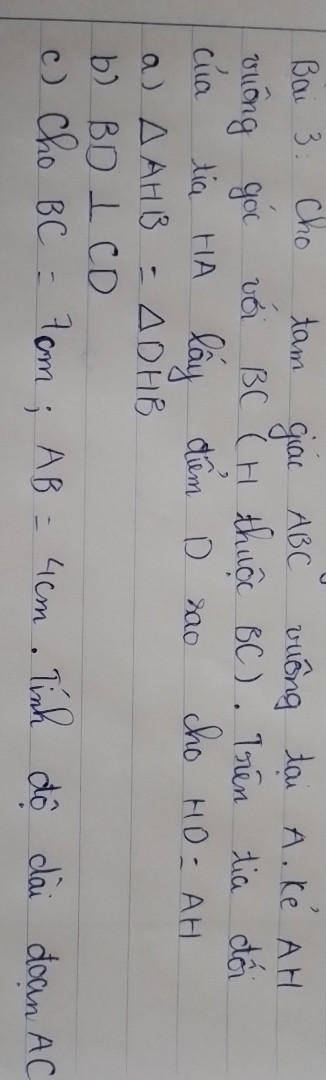 Bài 3: Cho tam giác ABC vuông tại A. Kẻ AH
vuông góc với BC (H thuộc BC). Trên tia đối
của tia HA lấy điểm D sao cho HD = AH
a) △AHB = △DHB
b) BD ⊥ CD
c) Cho BC = 7cm; AB = 4cm. Tính độ dài đoạn AC